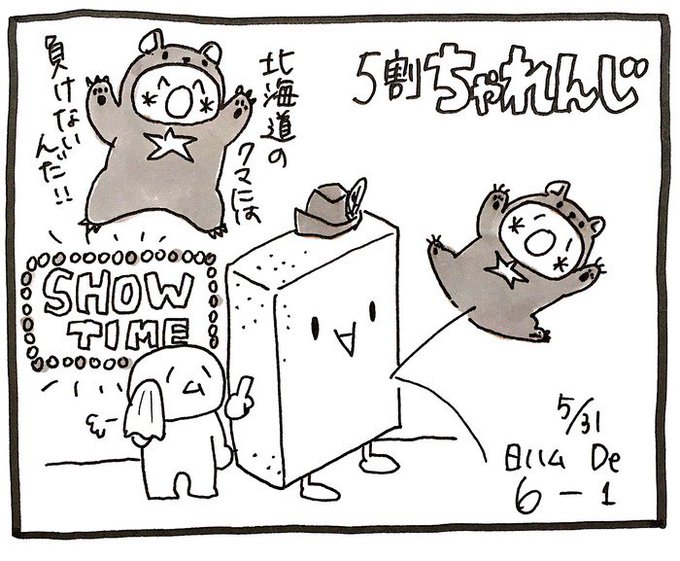 5割ちゃれんじ
北海道の
クマには
負けない
んだ!!
SHOW
TIME
5/31
De
6-1